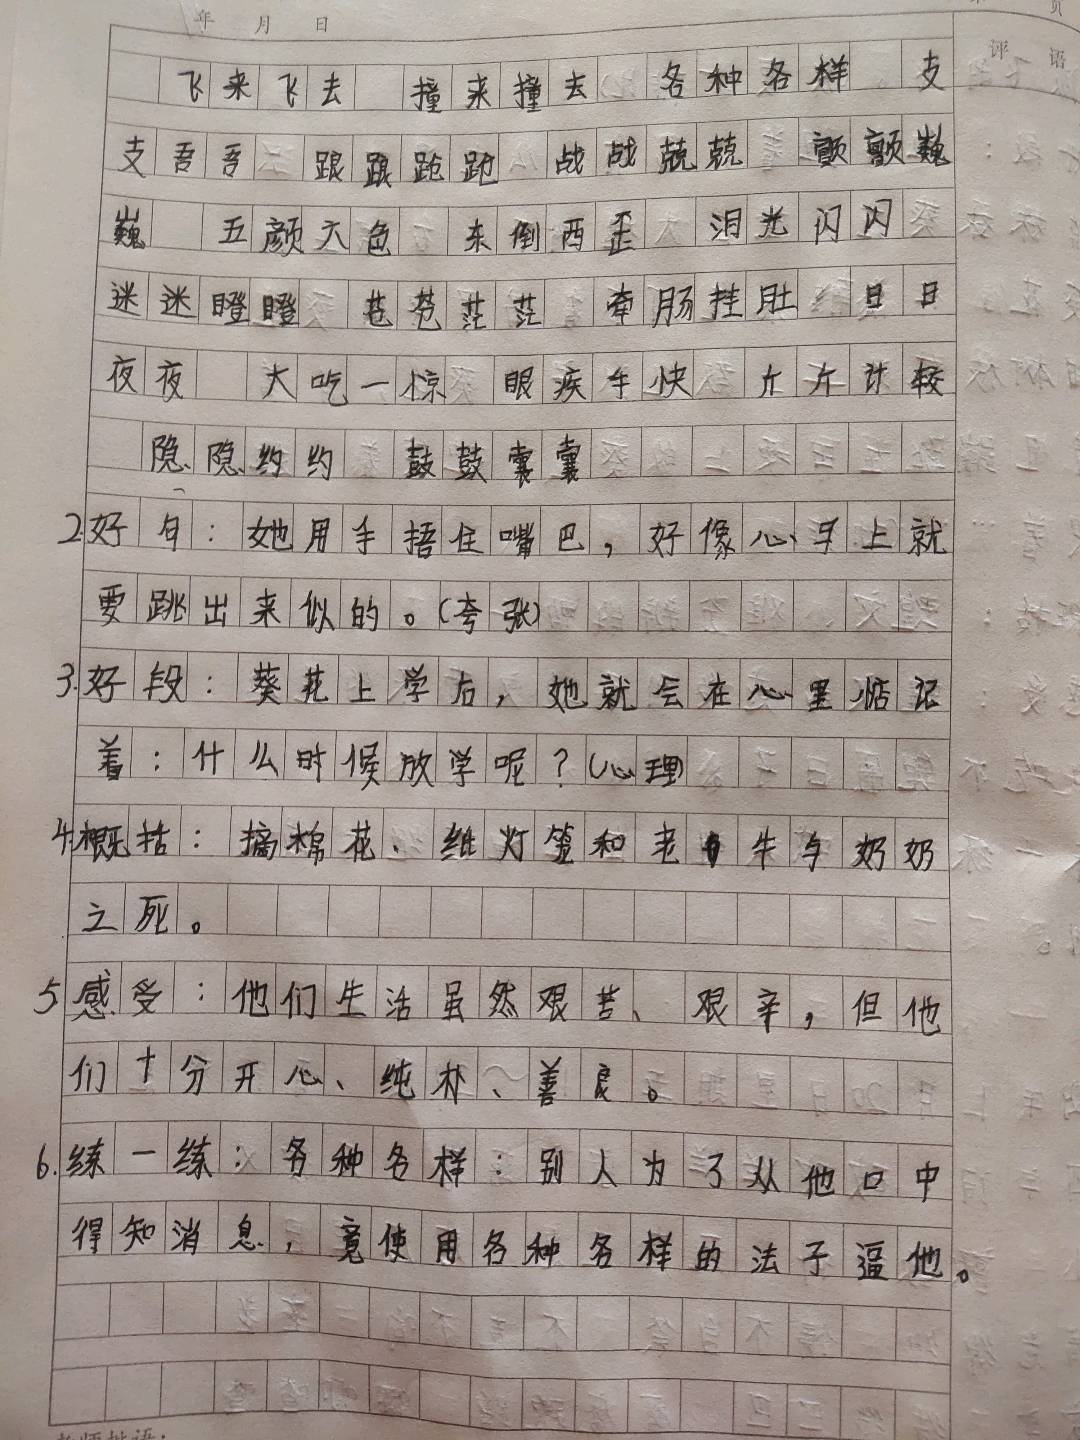 年 月 日
页
评语
飞来飞去 撞来撞去 各种各样 支
支吾吾 踉踉跄跄 战战兢兢 颤颤巍
巍 五颜六色 东倒西歪 泪光闪闪
迷迷瞪瞪 苍苍茫茫 牵肠挂肚 日日
夜夜 大吃一惊 眼疾手快 斤斤计较
隐隐约约 鼓鼓囊囊
2.好句：她用手捂住嘴巴，好像心马上就
要跳出来似的。(夸张)
3.好段：葵花上学后，她就会在心里惦记
着：什么时候放学呢？(心理)
4.概括：摘棉花、纸灯笼和老牛与奶奶
之死。
5.感受：他们生活虽然艰苦、艰辛，但他
们十分开心、纯朴、善良。
6.练一练：各种各样：别人为了从他口中
得知消息，竟使用各种各样的法子逼他。
老师批语：